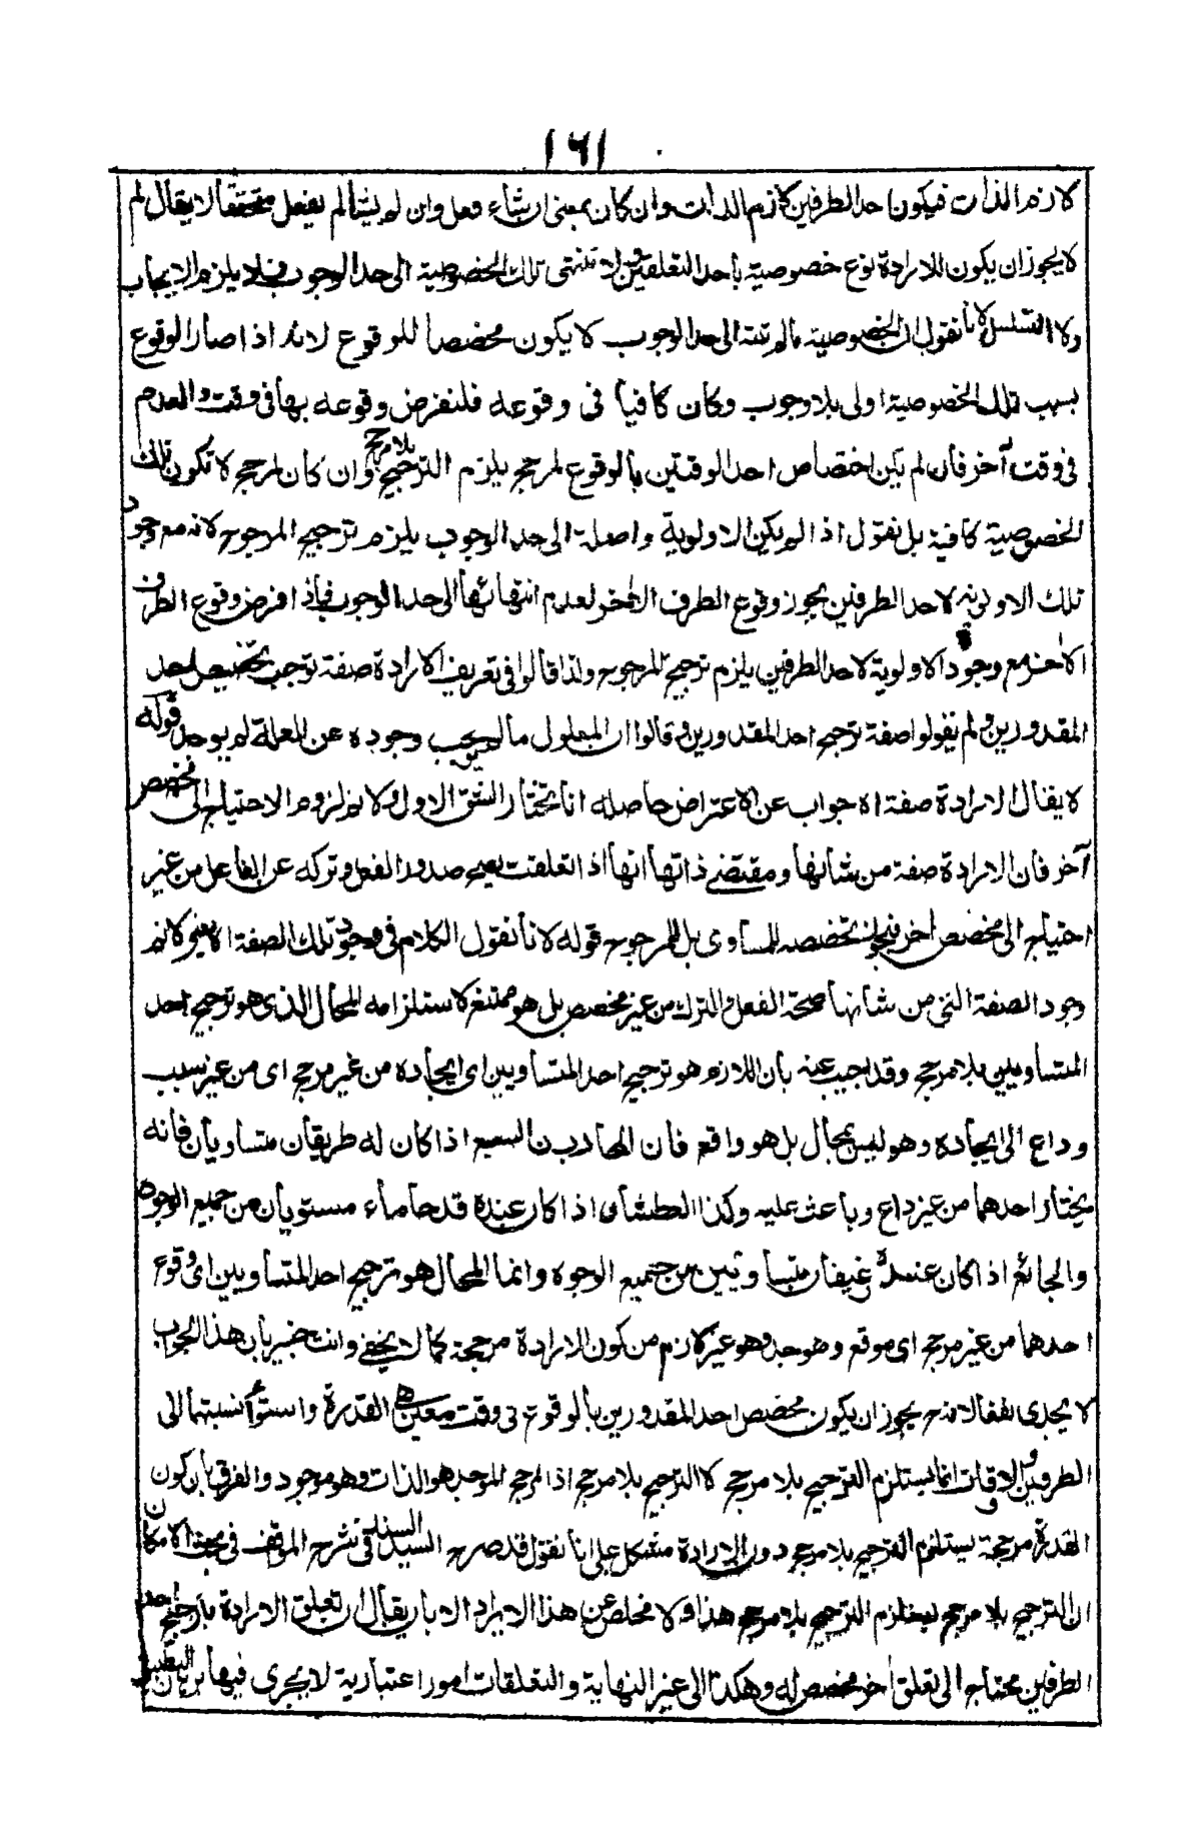 ١٦١
لازم الذات فيكون احد الطرفين لازم الذات وان كان بمعنى ان شاء فعل وان لم يشألم يفعل متحققا لا يقال لم
لا يجوز ان يكون للارادة نوع خصوصية باحد التعلقين ولا تنتهى تلك الخصوصية الى حد الوجوب فلا يلزم الايجاب
ولا التسلسل لانا نقول ان الخصوصية مالم تنته الى حد الوجوب لا يكون مخصصا للوقوع لانه اذا صار الوقوع
بسبب تلك الخصوصية اولى بلا وجوب وكان كافيا فى وقوعه فلنفرض وقوعه بها فى وقت والعدم
فى وقت آخر فان لم يكن اختصاص احد الوقتين بالوقوع لمرجح يلزم الترجيح بلا مرجح وان كان لمرجح لا تكون تلك
الخصوصية كافية بل نقول اذا لم يكن الاولوية واصلة الى حد الوجوب يلزم ترجيح المرجوح لانه مع وجود
تلك الاولوية لاحد الطرفين يجوز وقوع الطرف الاخر لعدم انتهائها الى حد الوجوب فاذا فرض وقوع الطرف
الاخر مع وجود الاولوية لاحد الطرفين يلزم ترجيح المرجوح ولذا قالوا فى تعريف الارادة صفة توجب تخصيص احد
المقدورين ولم يقولوا صفة ترجح احد المقدورين وقالوا ان المعلول مالم يجب وجوده عن العلة لم يوجد قوله
لا يقال الارادة صفة اه جواب عن الاعتراض حاصله انا نختار الشق الاول ولا نم لزوم الاحتياج الى مخصص
آخر فان الارادة صفة من شانها ومقتضى ذاتها انها اذا تعلقت صدور الفعل وتركه عن الفاعل من غير
احتياج الى مخصص اخر فيجوز تخصصه للمساوى بل المرجوح قوله لانا نقول الكلام فى وجود تلك الصفة اه يعنى لا نم
وجود الصفة التى من شانها صحة الفعل والترك من غير مخصص بل هو ممتنع لاستلزامه المحال الذى هو ترجيح احد
المتساويين بلا مرجح وقد اجيب عنه بان اللازم هو ترجيح احد المتساويين اى ايجاده من غير مرجح اى من غير سبب
وداع الى ايجاده وهو ليس بمحال بل هو واقع فان الهارب من السبع اذا كان له طريقان متساويان فانه
يختار احدهما من غير داع وباعث عليه وكذا العطشان اذا كان عنده قدحا ماء مستويان من جميع الوجوه
والجائع اذا كان عنده رغيفان متساويين من جميع الوجوه وانما المحال هو ترجيح احد المتساويين اى وقوع
احدهما من غير مرجح اى موقع وهو موجد وهو غير لازم من كون الارادة مرجحة كما لا يخفى وانت خبير بان هذا الجواب
لا يجدى نفعا لانه ح يجوز ان يكون مخصص احد المقدورين بالوقوع فى وقت معين هى القدرة واستواء نسبتها الى
الطرفين والاوقات انما يستلزم الترجيح بلا مرجح لا الترجيح بلا مرجح اذ المرجح الموجد هو الذات وهو موجود والفرق بان كون
القدرة مرجحة يستلزم الترجيح بلا مرجح دون الارادة مشكل على انا نقول قد صرح السيد السند فى شرح المواقف فى بحث الامكان
ان الترجيح بلا مرجح يستلزم الترجيح بلا مرجح هذا ولا مخلص عن هذا الايراد الا بان يقال ان تعلق الارادة بترجيح احد
الطرفين محتاج الى تعلق اخر مخصص له وهكذا الى غير النهاية والتعلقات امور اعتبارية لا يجرى فيها برهان التطبيق